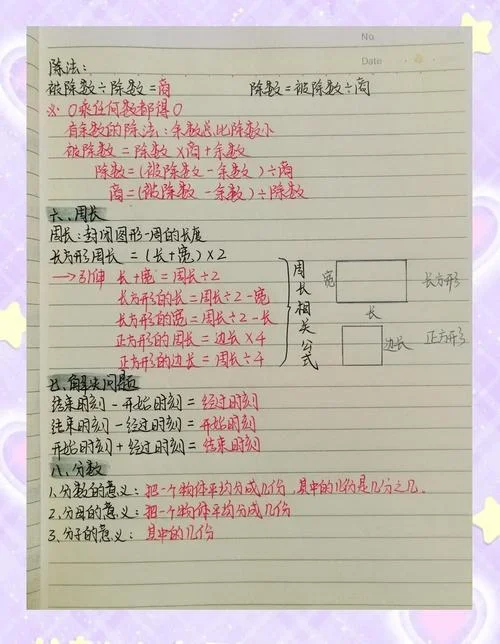 No
Date
除法：
被除数÷除数=商 除数=被除数÷商
※ 0乘任何数都得0
有余数的除法：余数总比除数小
被除数=除数×商+余数
除数=(被除数-余数)÷商
商=(被除数-余数)÷除数
六、周长
周长：封闭图形一周的长度
长方形周长=(长+宽)×2
→引伸 长+宽=周长÷2
长方形的长=周长÷2-宽
长方形的宽=周长÷2-长
正方形的周长=边长×4
正方形的边长=周长÷4
周长相关公式
宽 长方形
长
边长 正方形
七、解决问题
结束时刻-开始时刻=经过时刻
结束时刻-经过时刻=开始时刻
开始时刻+经过时刻=结束时刻
八、分数
1、分数的意义：把一个物体平均分成几份，其中的几份是几分之几.
2、分母的意义：把一个物体平均分成几份
3、分子的意义：其中的几份